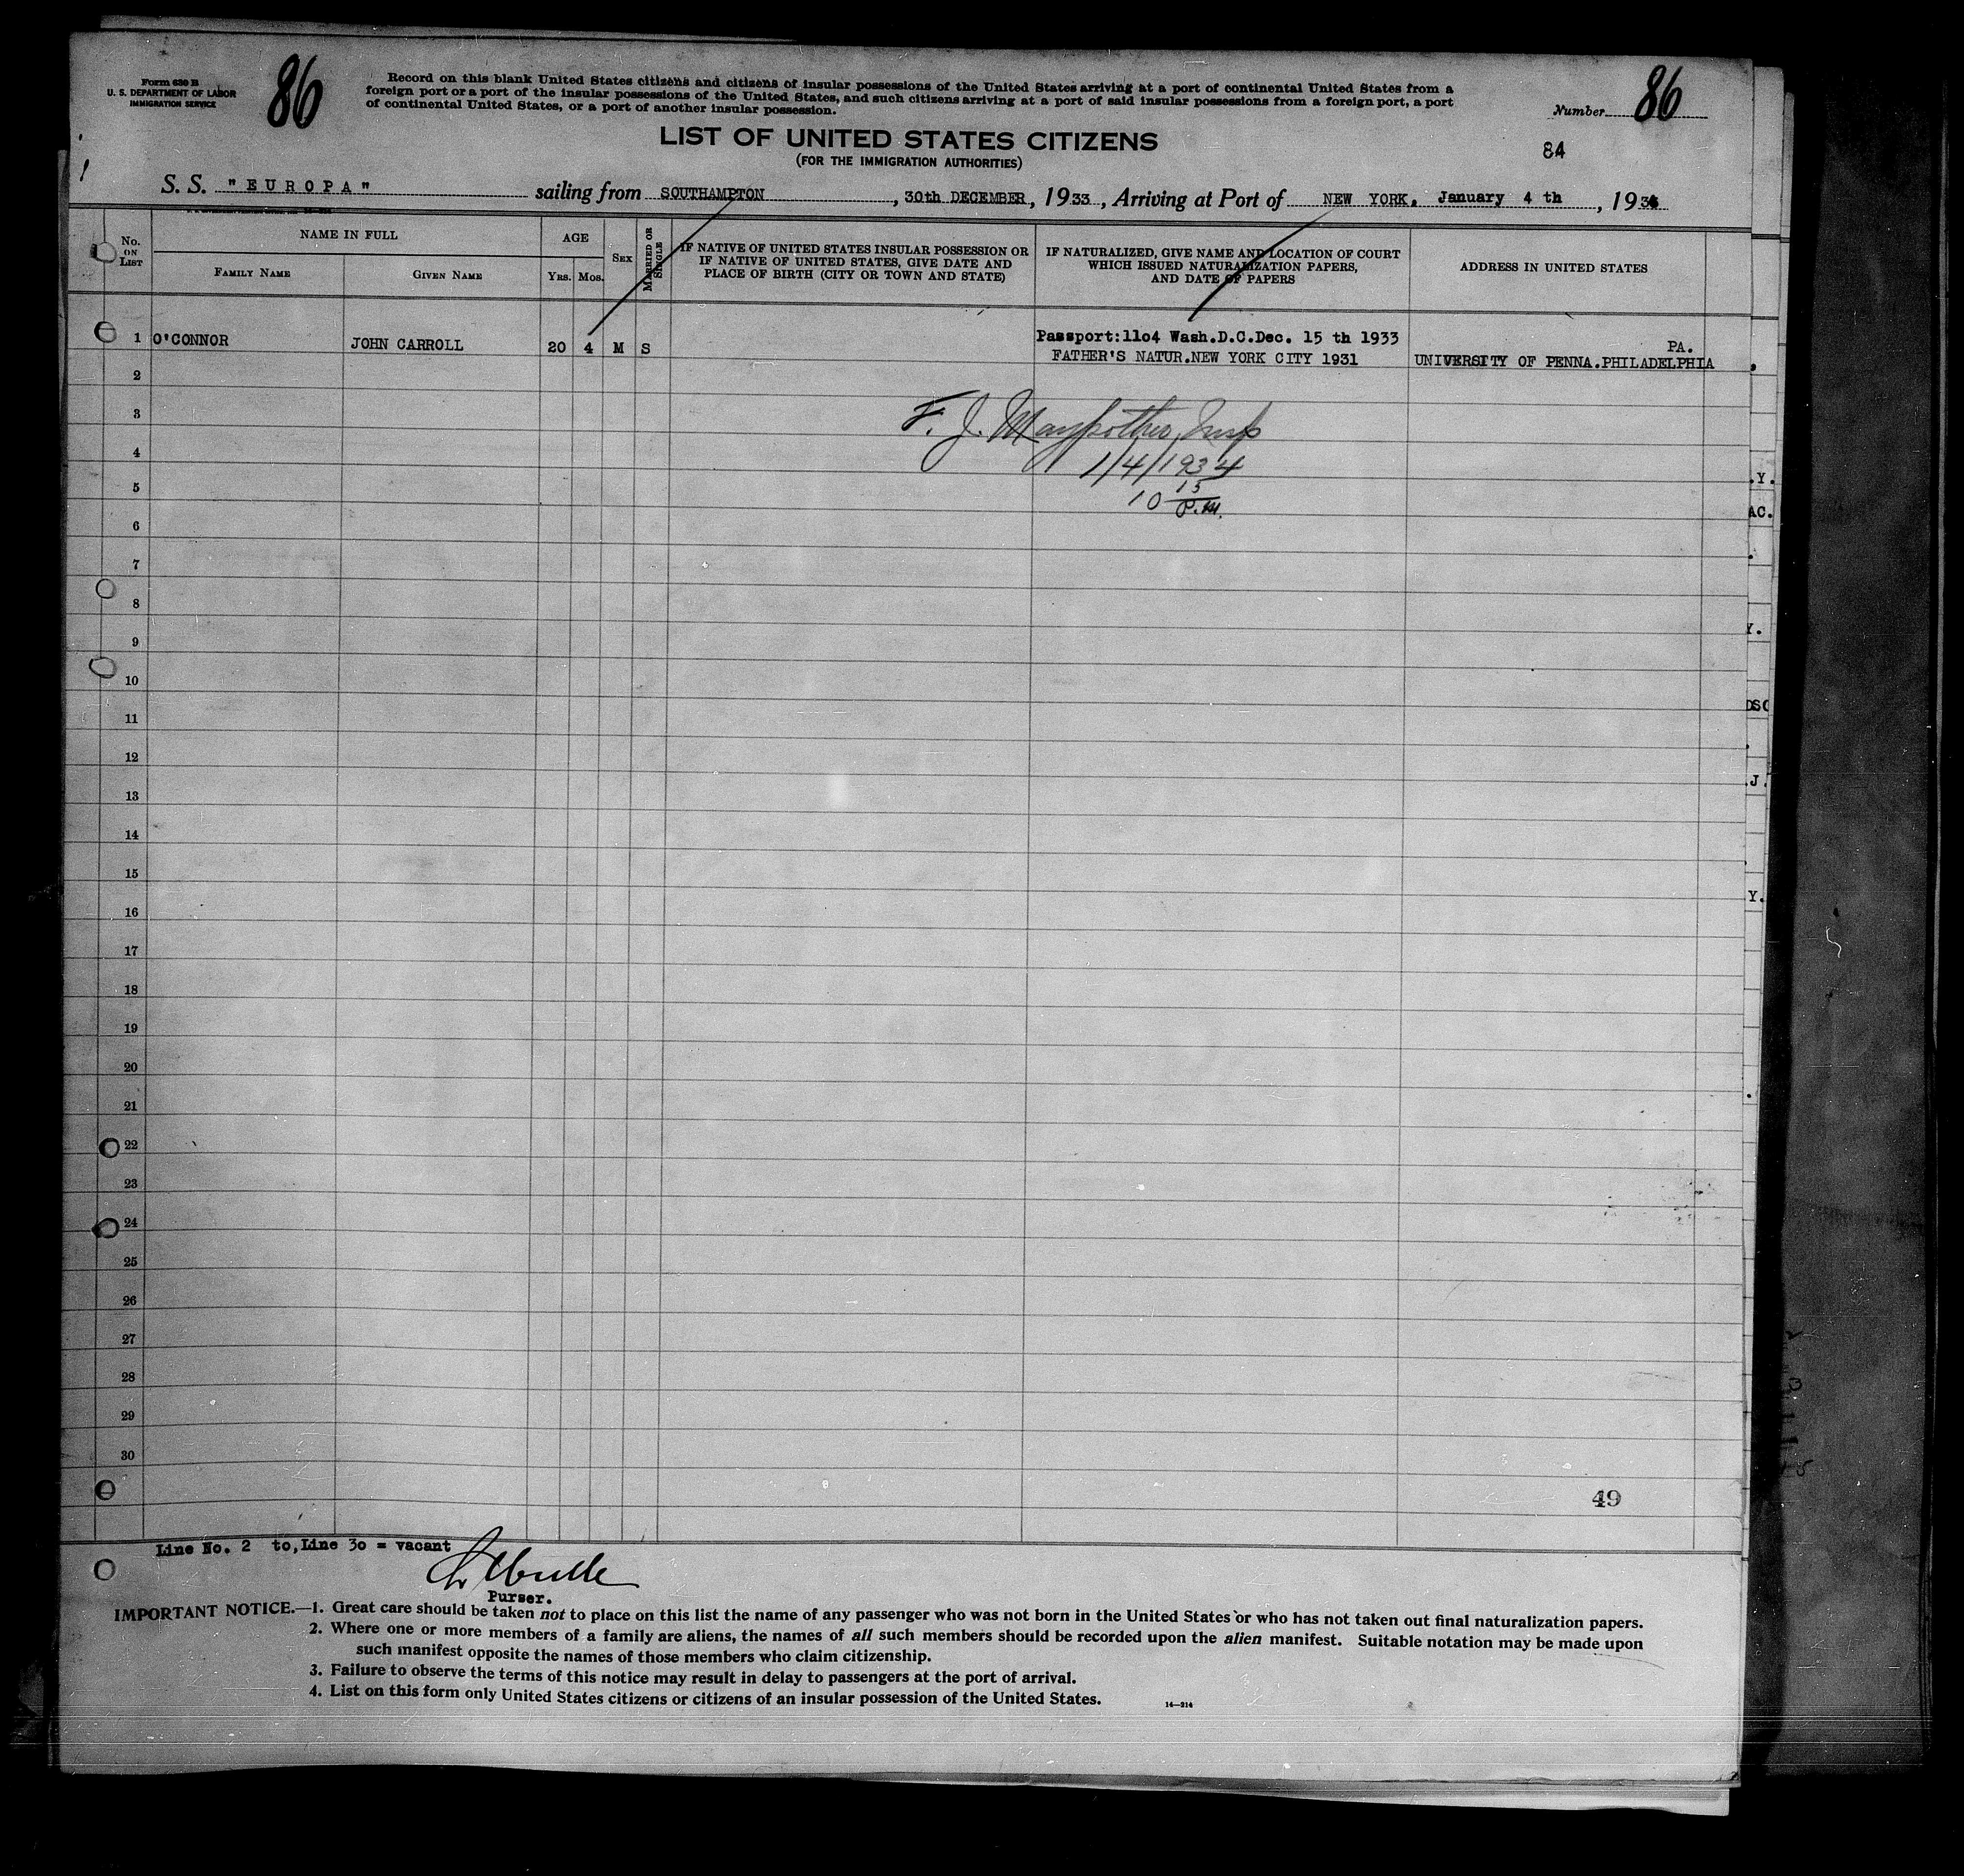 Form 630 B
U. S. DEPARTMENT OF LABOR
IMMIGRATION SERVICE
86
Record on this blank United States citizens and citizens of insular possessions of the United States arriving at a port of continental United States from a
foreign port or a port of the insular possessions of the United States, and such citizens arriving at a port of said insular possessions from a foreign port, a port
of continental United States, or a port of another insular possession.
Number 86
LIST OF UNITED STATES CITIZENS
(FOR THE IMMIGRATION AUTHORITIES)
84
S. S. "EUROPA" sailing from SOUTHAMPTON, 30th DECEMBER, 1933, Arriving at Port of NEW YORK. January 4 th, 1934
No. ON LIST
NAME IN FULL
FAMILY NAME
GIVEN NAME
AGE
YRS. MOS.
SEX
MARRIED OR SINGLE
IF NATIVE OF UNITED STATES INSULAR POSSESSION OR
IF NATIVE OF UNITED STATES, GIVE DATE AND
PLACE OF BIRTH (CITY OR TOWN AND STATE)
IF NATURALIZED, GIVE NAME AND LOCATION OF COURT
WHICH ISSUED NATURALIZATION PAPERS,
AND DATE OF PAPERS
ADDRESS IN UNITED STATES
1 O'CONNOR JOHN CARROLL 20 4 M S
Passport:11o4 Wash.D.C.Dec. 15 th 1933
FATHER'S NATUR.NEW YORK CITY 1931
PA.
UNIVERSITY OF PENNA.PHILADELPHIA
2
3
F. J. Maypother, Insp
4
1/4/1934
5
10 15 P.M.
6
7
8
9
10
11
12
13
14
15
16
17
18
19
20
21
22
23
24
25
26
27
28
29
30
49
.Y.
AC.
Y.
DSC
.J.
Y.
Line No. 2 to,Line 3o = vacant
Purser.
IMPORTANT NOTICE.—1. Great care should be taken not to place on this list the name of any passenger who was not born in the United States or who has not taken out final naturalization papers.
2. Where one or more members of a family are aliens, the names of all such members should be recorded upon the alien manifest. Suitable notation may be made upon
such manifest opposite the names of those members who claim citizenship.
3. Failure to observe the terms of this notice may result in delay to passengers at the port of arrival.
4. List on this form only United States citizens or citizens of an insular possession of the United States.
14—214